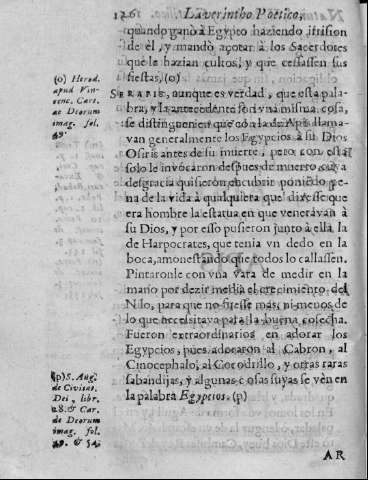 126 Laverintho Poetico,
quando ganò à Egypto haziendo irrision
de èl, y mandò açotar à los Sacerdotes
que le hazian cultos, y que cessassen sus
fiestas, (o)
SERAPIS, aunque es verdad, que esta pala-
bra, y la antecedente son vna misma cosa,
se distinguen en que cõ la de Apis llama-
van generalmente los Egypcios à su Dios
Osiris antes de su muerte, pero con esta
solo le invocaron despues de muerto, cuya
desgracia quisieron encubrir poniẽdo pe-
na de la vida à qualquiera que dixesse que
era hombre la estatua en que veneravan à
su Dios, y por esso pusieron junto à ella, la
de Harpocrates, que tenia vn dedo en la
boca, amonestando que todos lo callassen.
Pintaronle con vna vara de medir en la
mano por dezir media el crecimiento del
Nilo, para que no fuesse mas, ni menos de
lo que necessitava para la buena cosecha.
Fueron extraordinarios en adorar los
Egypcios, pues adoraron al Cabron, al
Cinocephalo, al Cocodrillo, y otras raras
sabandijas, y algunas cosas suyas se vèn en
la palabra Egypcios. (p)
(o) Herod.
apud Vin-
cenc. Cart.
de Deorum
imag. fol.
49.
(p) S. Aug.
de Civitat.
Dei, libr.
18. & Car.
de Deorum
imag. fol.
49. & 54.
AR